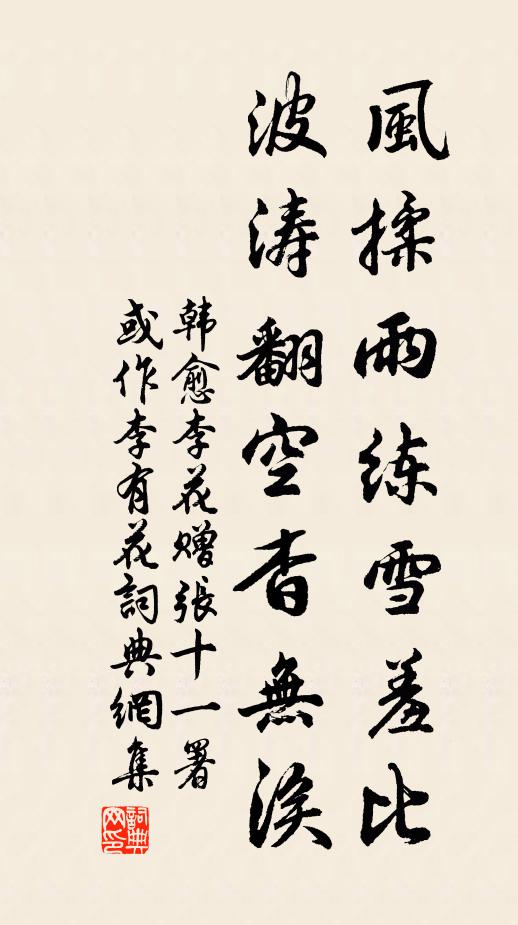 風揉雨練雪羞比
波涛翻空杳無涘
韩愈李花赠張十一署
或作李有花詞典網集
詞典网印